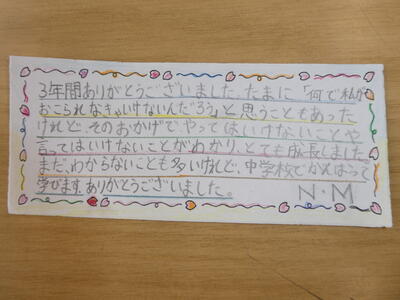 3年間ありがとうございました。たまに「何で私が
おこられなきゃいけないんだろう」と思うこともあった
けれど、そのおかげでやってはいけないことや
言ってはいけないことがわかり、とても成長しました。
まだ、わからないことも多いけれど、中学校でがんばって
学びます。ありがとうございました。
N・M